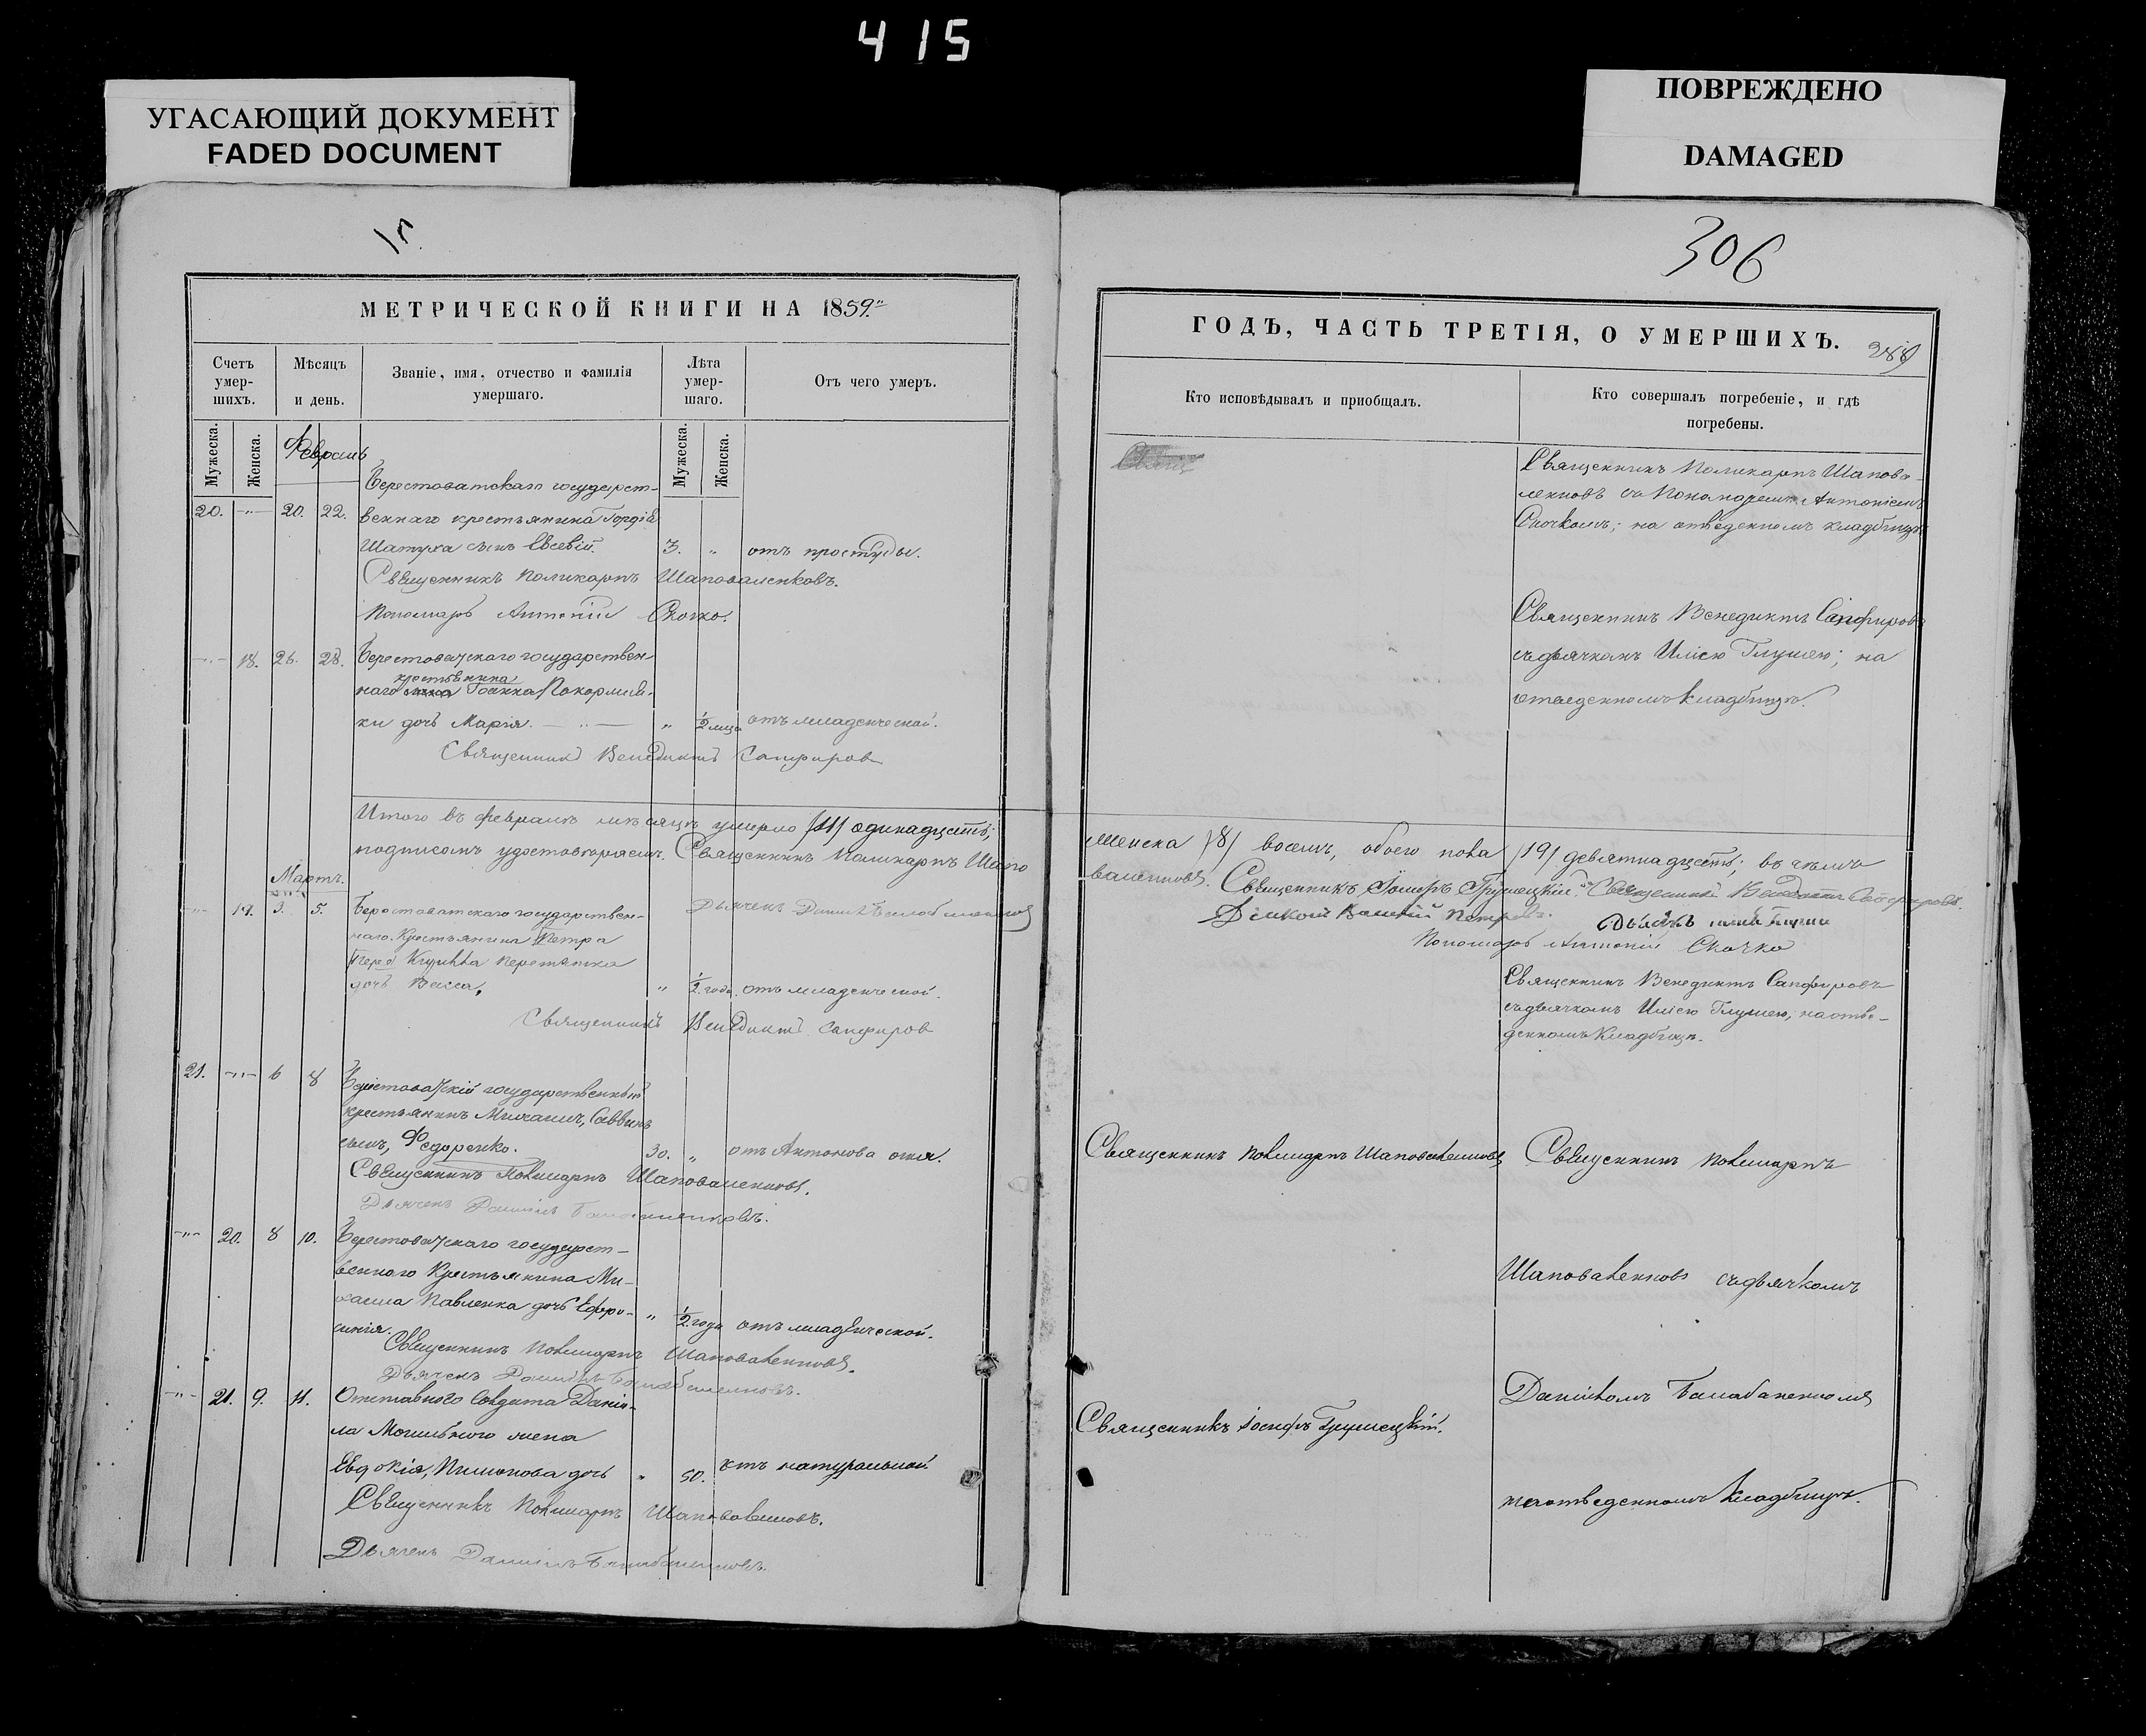 415
УГАСАЮЩИЙ ДОКУМЕНТ
FADED DOCUMENT
ПОВРЕЖДЕНО
DAMAGED
306
МЕТРИЧЕСКОЙ КНИГИ НА 1859.
Счетъ умер-шихъ.
Мѣсяцъ и день.
Званіе, имя, отчество и фамилія умершаго.
Лѣта умер-шаго.
Отъ чего умеръ.
Мужеска.
Женска.
Мужеска.
Женска.
Февраль
20. -"- 20. 22.
Берестоватскаго государст-
веннаго крестьянина Гордія
Шатуха сынъ Евсевій. 3. " отъ простуды.
Священникъ Поликарпъ Шаповаленковъ.
Пономарь Антоній Скочко.
-"- 18. 26. 28. Берестоватскаго государствен-
крестьянина
наго Іоанна Покормий-
ки дочь Марія. " 1/2 мца отъ младенческой.
Священникъ Венедиктъ Сапфиров
Итого въ февралѣ мѣсяцѣ умерло /11/ одинадцать;
подписомъ удостовѣряемъ. Священникъ Поликарпъ Шапо
Мартъ.
-"- 19. 3. 5. Берестоватскаго государствен-
наго Крестьянина Петра
Перетятка
дочь Васса, " 1/2 года. отъ младенческой.
Дьячекъ Даніилъ
Священникъ Венедиктъ Сапфиров
21. -"- 6 8 Берестоватскій государственный
крестьянинъ Михаилъ, Саввинъ
сынъ, Федоренко. 30. " отъ Антонова огня.
Священникъ Поликарпъ Шаповаленковъ.
Дьячекъ Даніилъ Балабаненковъ.
-"- 20. 8 10. Берестоватскаго государст-
веннаго Крестьянина Ми-
хаила Павленка дочь Ефро-
синія. " 1/2 года отъ младенческой.
Священникъ Поликарпъ Шаповаленковъ.
Дьячекъ Даніилъ Балабаненковъ.
-"- 21. 9. 11. Отставного Солдата Даніи-
ла Могильного жена
Евдокія, Пимонова дочь " 50. отъ натуральной
Священникъ Поликарпъ Шаповаленковъ.
Дьячекъ Даніилъ Балабаненковъ.
ГОДЪ, ЧАСТЬ ТРЕТІЯ, О УМЕРШИХЪ.
Кто исповѣдывалъ и пріобщалъ.
Кто совершалъ погребеніе, и гдѣ погребены.
Священникъ Поликарпъ Шапова-
ленковъ съ Пономаремъ Антоніемъ
Скочкомъ; на отведенномъ кладбищѣ
Священникъ Венедиктъ Сапфировъ
съ дьячкомъ Иліею Глушею; на
отведенномъ кладбищѣ.
женска /8/ восемь, обоего пола /19/ девятнадцать; въ чемъ
валенковъ. Священникъ Іосифъ Грушецкій. Священникъ Венедиктъ Сапфировъ.
Пономарь Антоній Скочко
Священникъ Венедиктъ Сапфировъ
съ дьячкомъ Иліею Глушею, на отве-
денномъ Кладбищѣ.
Священникъ Поликарпъ Шаповаленковъ
Священникъ Поликарпъ
Шаповаленковъ съ дьячкомъ
Даніиломъ Балабаненкомъ
Священникъ Іосифъ Грушецкій.
на отведенномъ Кладбищѣ.